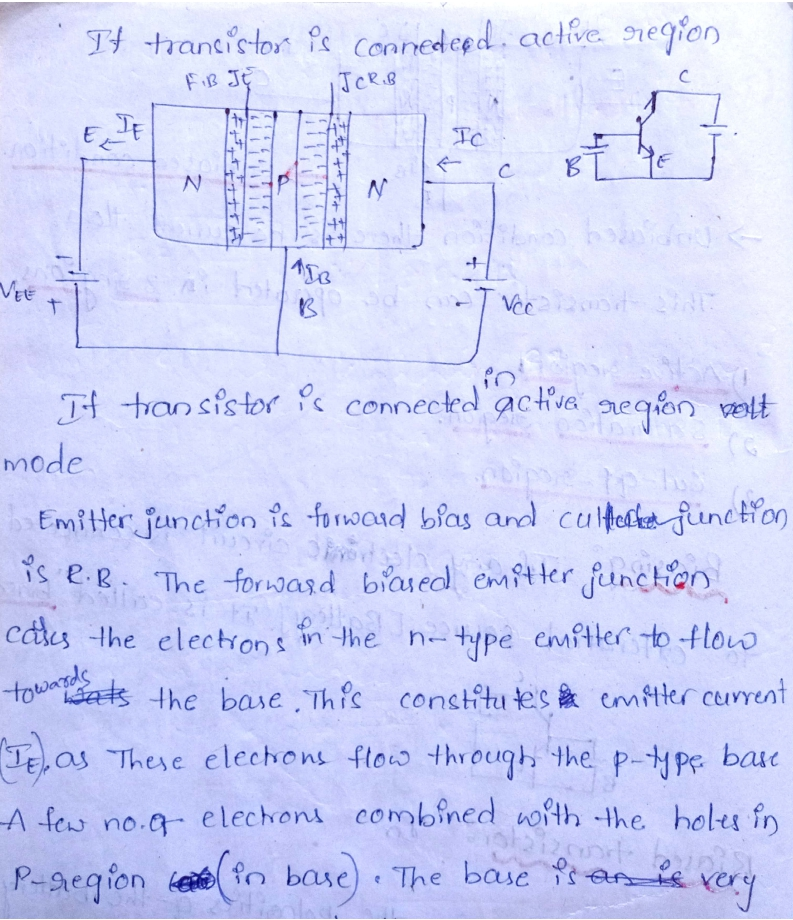 If trancistor is connedeed. active region
F.B JE JC R.B
C
E IE
IC
N P N
C
B E
IB
B
VEE - +
+ - VCC
If transistor is connected in active region
mode
Emitter junction is forward bias and junction
is R.B. The forward biased emitter junction
the electrons in the n-type emitter to flow
towards the base. This constitutes emitter current
(IE), as These electrons flow through the p-type base
A few no. of electrons combined with the holes in
P-region (in base). The base is very